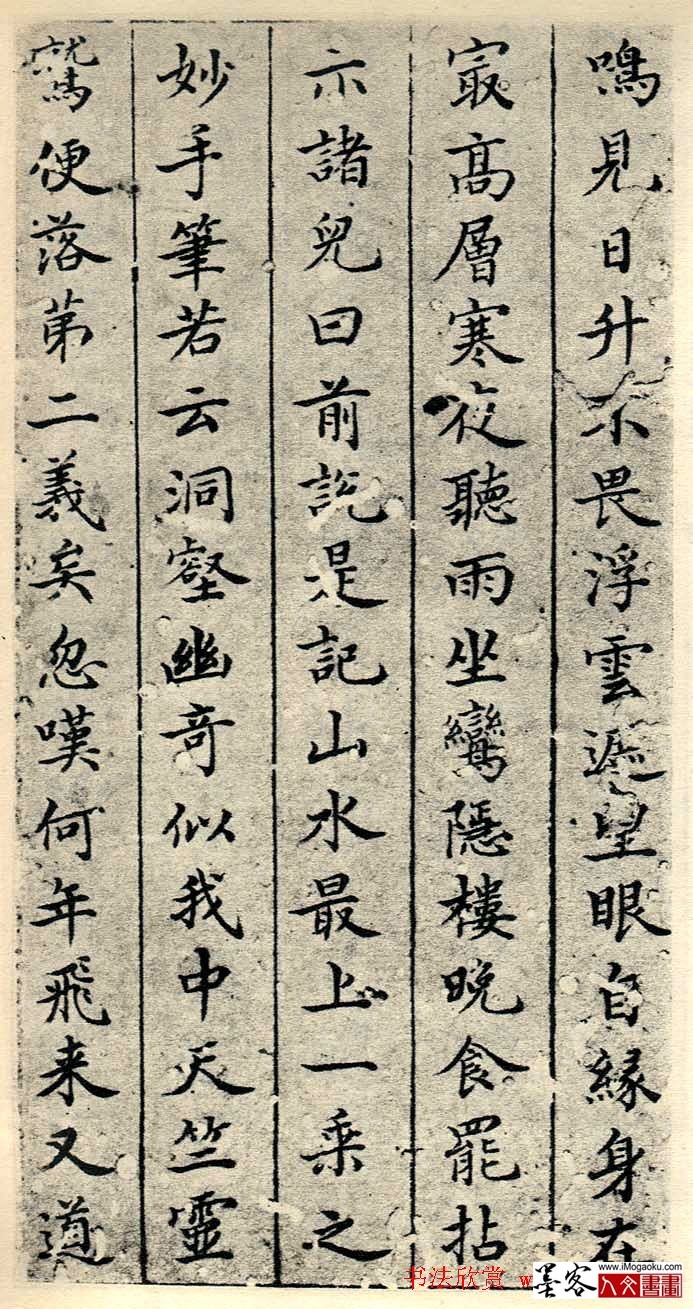 鳴見日升不畏浮雲遮望眼自緣身在
冣高層寒夜聽雨坐鸞隱樓晚食罷拈
示諸兒曰前説是記山水最上一乘之
妙手筆若云洞壑幽奇似我中天竺靈
鷲便落第二義矣忽嘆何年飛来又道
书法欣赏 w
墨客
人文書畫
www.iMogaoku.com